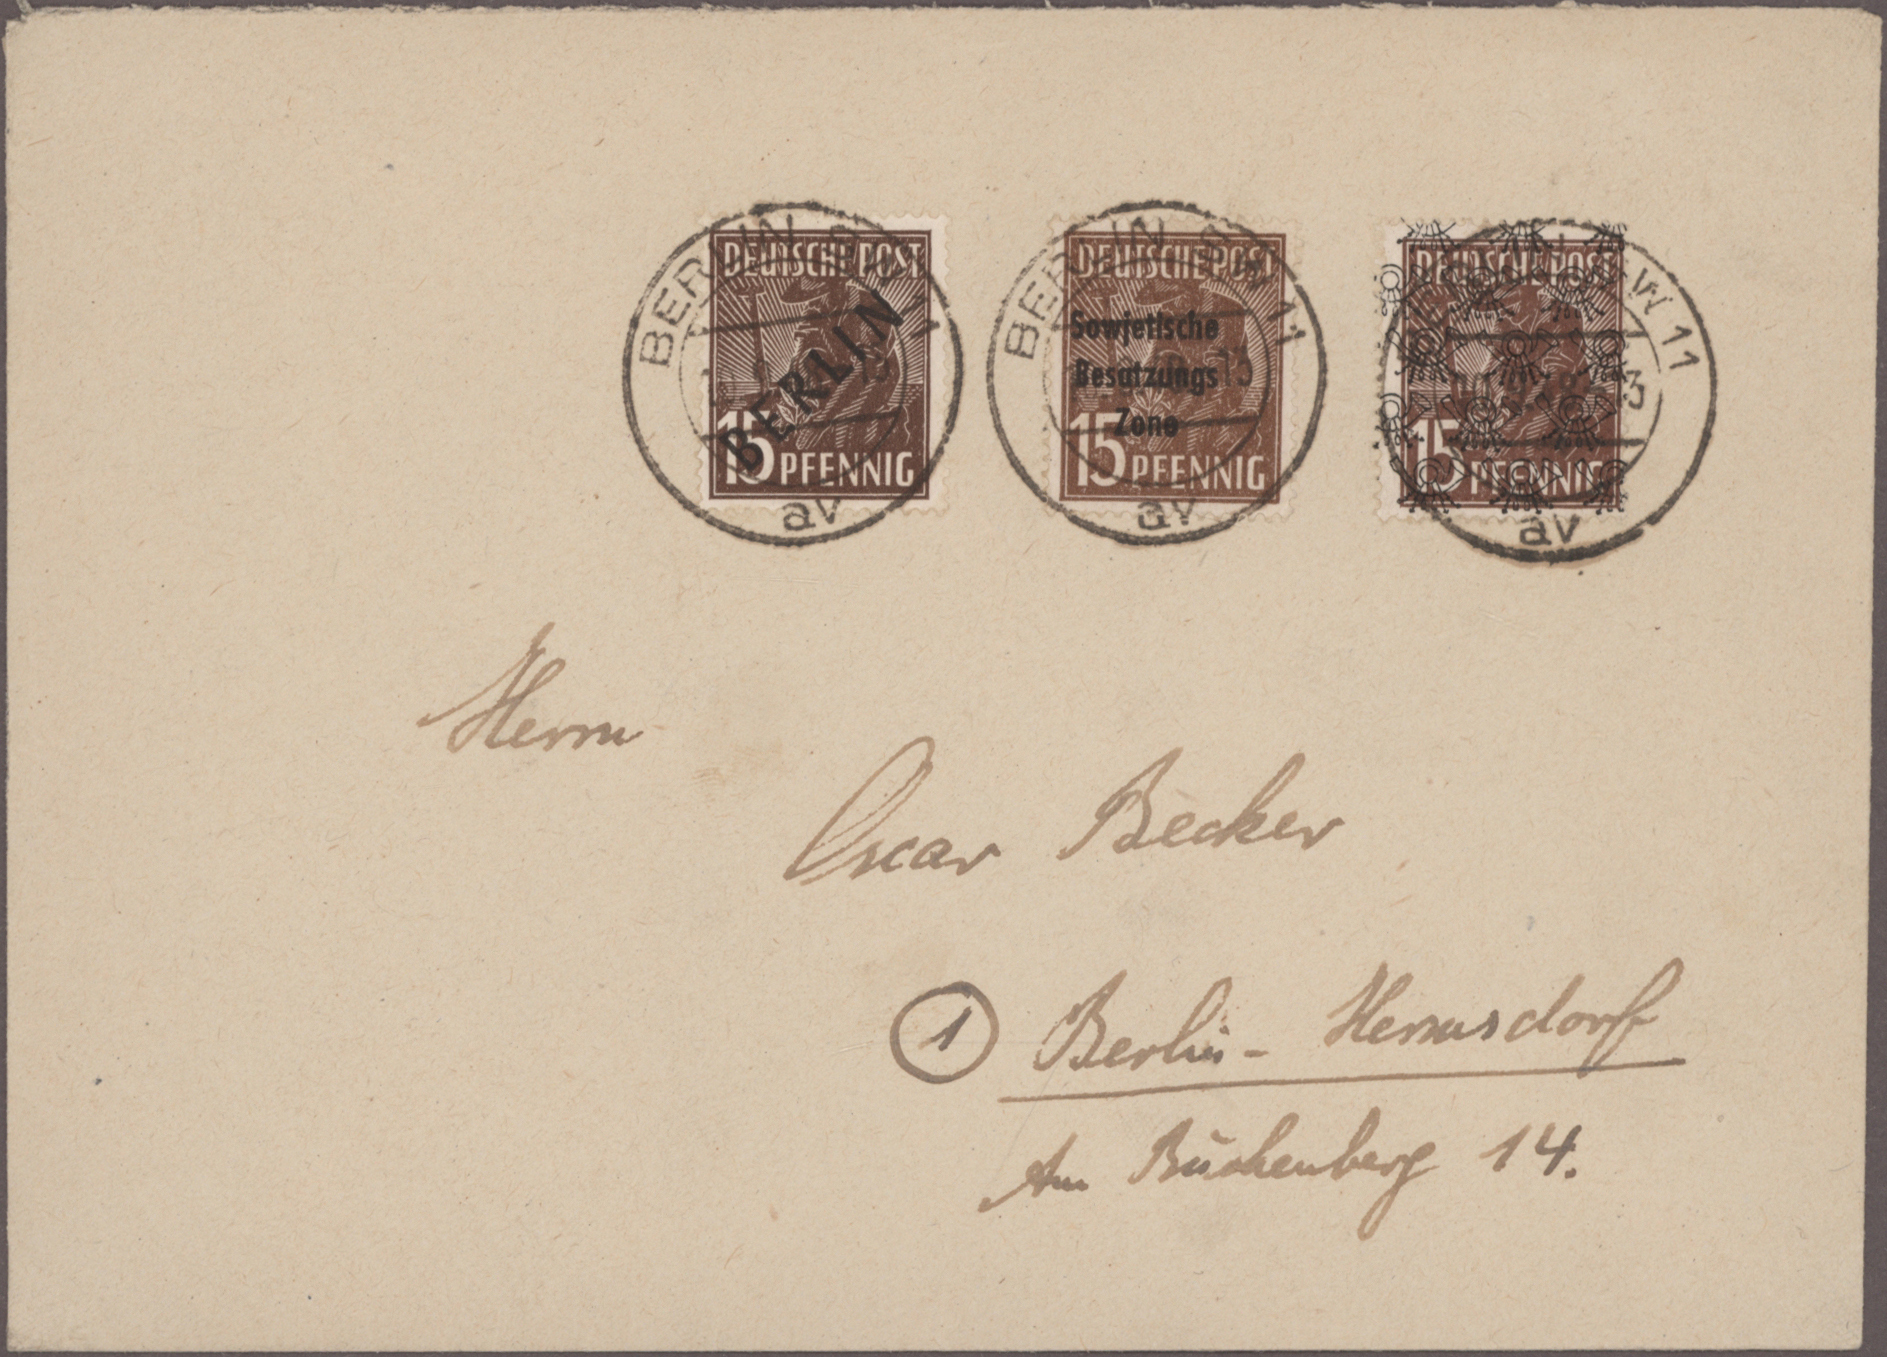 DEUTSCHE POST
BERLIN
15 PFENNIG
BERLIN SW 11
av
DEUTSCHE POST
Sowjetische
Besatzungs
Zone
15 PFENNIG
BERLIN SW 11
13
av
DEUTSCHE POST
15 PFENNIG
W 11
av
Herrn
Oscar Becker
1 Berlin- Hermsdorf
Am Buchenberg 14.